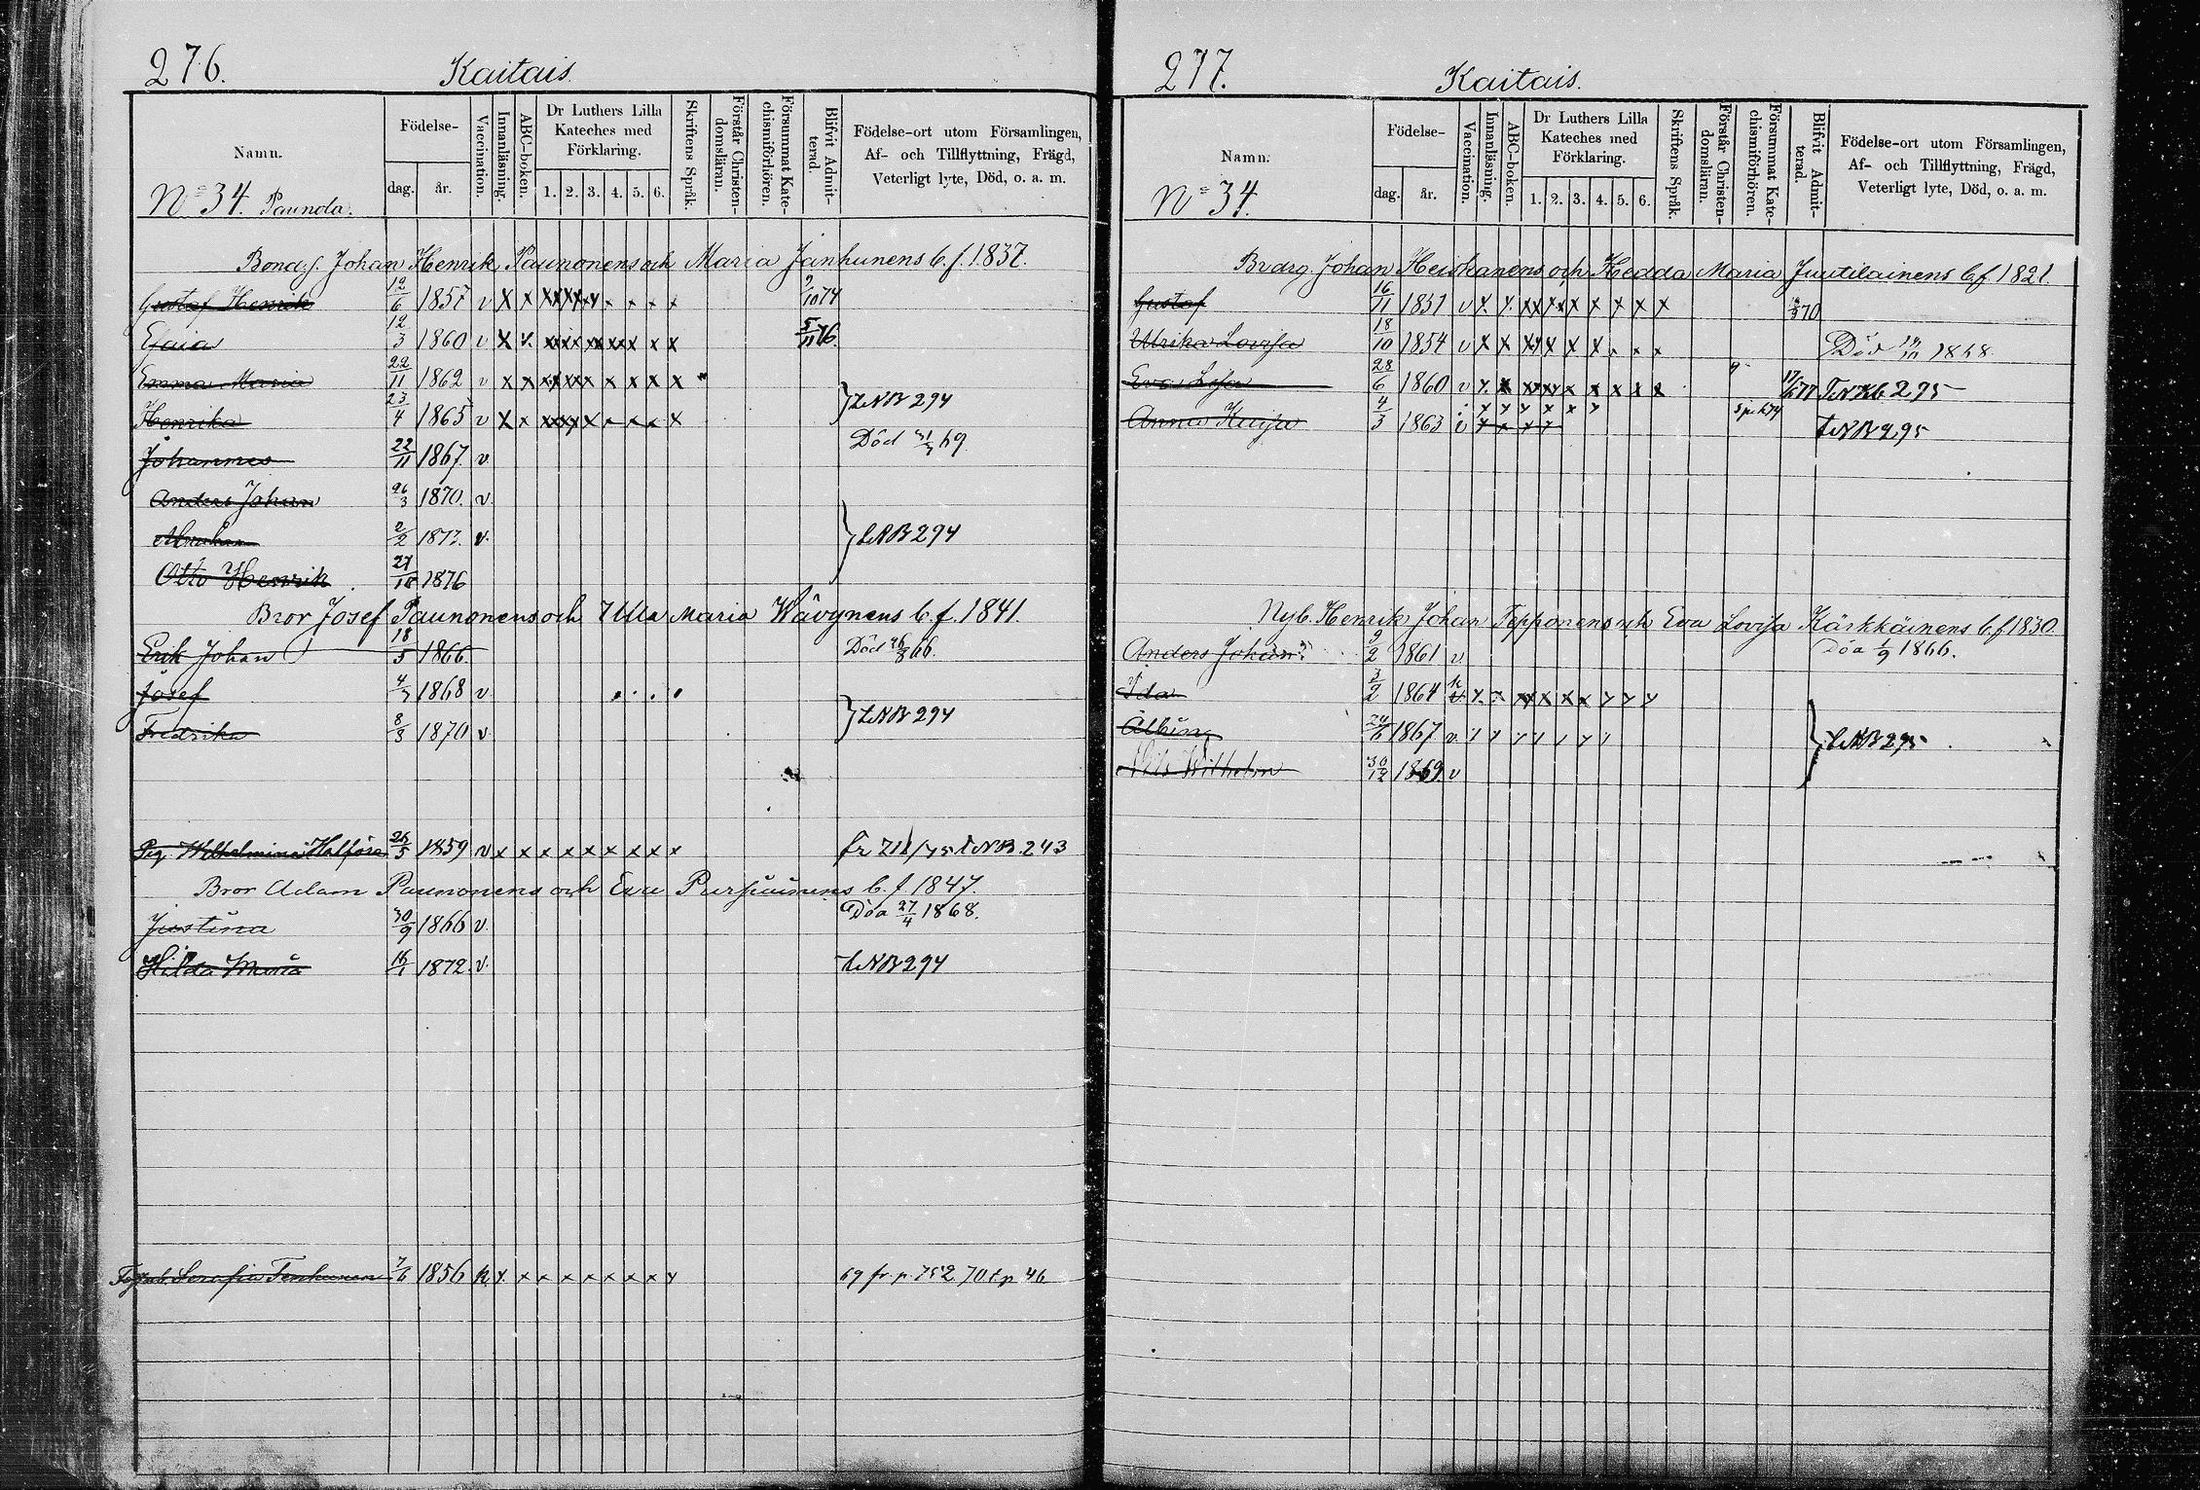 276.
Kaitais.
Namn.
Födelse-
dag.
år.
Vaccination.
Innanläsning.
ABC-boken.
Dr Luthers Lilla
Kateches med
Förklaring.
1. 2. 3. 4. 5. 6.
Skriftens Språk.
Förstår Christen-
domsläran.
Försummat Kate-
chismiförhören.
Blifvit Admit-
terad.
Födelse-ort utom Församlingen,
Af- och Tillflyttning, Frägd,
Veterligt lyte, Död, o. a. m.
No 34. Paunola.
Johan Henrik Paunonens och Maria Janhunens b. f. 1837.
Gustaf Henrik 12/6 1857 v x x x x x x x x x x 9/10 74
Esaia 12/3 1860 v x x x x x x x x x 5/11 76.
Emma Maria 22/11 1862 v x x x x x x x x x
Henrika 23/4 1865 v x x x x x x x x x 294
Johannes 22/11 1867. v. Död 69
Anders Johan 26/3 1870. v.
Abraham 2/2 1873. v. 294
Otto Henrik 1876
Bror Josef Paunonens och Ulla Maria Kävynens b. f. 1841.
Erik Johan 18/5 1866 Död 66.
Josef 1868 v
Fredrika 8/3 1870 v 294
Pig. Wilhelmina 1859 v x x x x x x x x x 243
Bror Adam Paunonens och Eva b. f 1847.
Justina 30/9 1866 v. Död 27/4 1868.
Hilda Maria 16/1 1872. v. 294
Serafia Tenhunen 7/6 1856 x x x x x x x x 69 fr. p. 752 70 t. p 46
277.
Kaitais.
Namn.
Födelse-
dag.
år.
Vaccination.
Innanläsning.
ABC-boken.
Dr Luthers Lilla
Kateches med
Förklaring.
1. 2. 3. 4. 5. 6.
Skriftens Språk.
Förstår Christen-
domsläran.
Försummat Kate-
chismiförhören.
Blifvit Admit-
terad.
Födelse-ort utom Församlingen,
Af- och Tillflyttning, Frägd,
Veterligt lyte, Död, o. a. m.
No 34.
Johan Heiskanens och Hedda Maria Juutilainens b. f 1821.
Gustaf 16/11 1851 v x x x x x x x x x x 70
Ulrika Lovisa 18/10 1854 v x x x x x x x x x Död 1868
Eva Lisa 28/6 1860 v x x x x x x x x x 77 295
Anna Kaisa 4/3 1863 v x x x x 295
Nyb. Henrik Johan Tepponens och Eva Lovisa Kärkkäinens b. f 1830.
Anders Johan 9/2 1861 v. Död 1/9 1866.
Ida 3/2 1864 x x x x x x x x x
Albin 24/6 1867 v. 295
Nils Wilhelm 30/12 1869. v